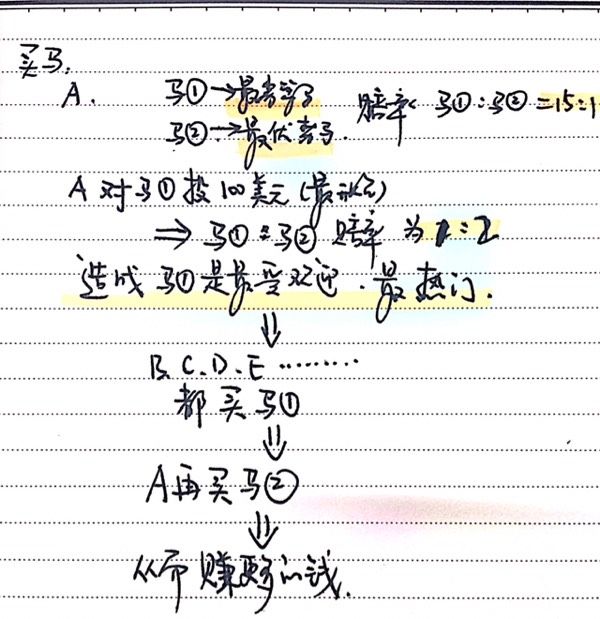 买马:
A. 马①→最劣等马 赔率: 马①:马②=15:1
马②→最优秀马.
A 对马①投100美元
⇒ 马①:马② 赔率 为 1:2
造成 马①是最受欢迎.最热门.
⇓
B.C.D.E………
都买马①
⇓
A再买马②
⇓
从而赚更多的钱.